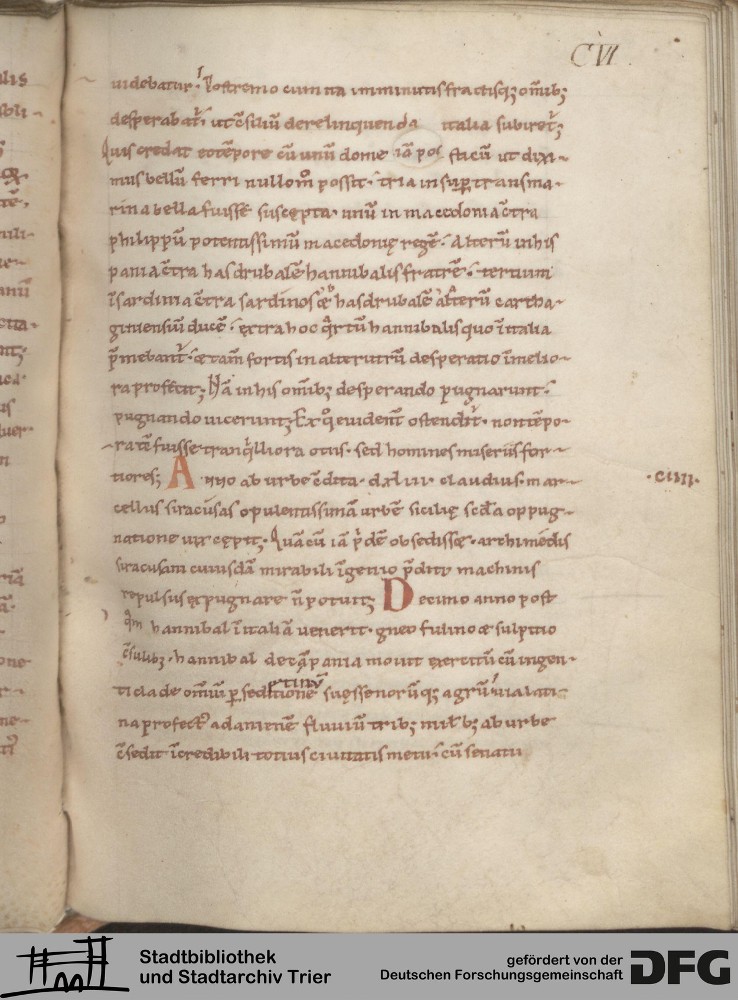 CVI
uidebatur. Postremo cum ita imminutis fractisq; om̄ib;
desperabat͛ ut c̄siliū derelinquenda italia subiret͛;
Quis credat eo tēpore cū unū dome iā pos ficū ut dixi-
mus bellū ferri nullom̊ possit. tria insuꝑ transma-
rina bella fuisse suscępta. unū in macedonia c̄tra
philippū potentissimū macedonię regē. Alterū in his
pania c̄tra hasdrubalē hannibalis fratrē. tertium
ī sardinia c̄tra sardinos & hasdrubalē alterū cartha-
giniensiū ducē. extra hoc q̄rtū hannibalis quo ī italia
p̄mebant͛. & tam̄ fortis in alterutrū desperatio ī melio-
ra profecit; Nā in his om̄ib; desperando pugnarunt.
pugnando uicerunt; Ex quo euident̄ ostendit͛. non tēpo-
ra tē fuisse tranq̇lliora otiis. sed homines miseriis for-
tiores; Anno ab urbe c̄dita. dxliiii claudius. mar- .CIIII.
cellus siracusas opulentissimā urbē sicilię sc̄da oppug-
natione uix cępit. Quā cū iā ṗdē obsedisset. archimedis
siracusani ciuis cuiusdā mirabili īgenio p̄ditꝰ machinis
repulsus expugnare n̄ potuit; Decimo anno post
qm̄ hannibal ī italiā uenerit. gneo fuluio & sulpitio
c̄sulib;. hannibal de cāpania mouit exercitū cū ingen-
ti clade om̄iū ꝑ seditione suessenorūq; agrū uia lati-
na profect͛ ad anienē fluuiū trib; mil̄ib; ab urbe
c̄sedit īcredibili totius ciuitatis metu. cū senatu
Stadtbibliothek
und Stadtarchiv Trier
gefördert von der
Deutschen Forschungsgemeinschaft
DFG